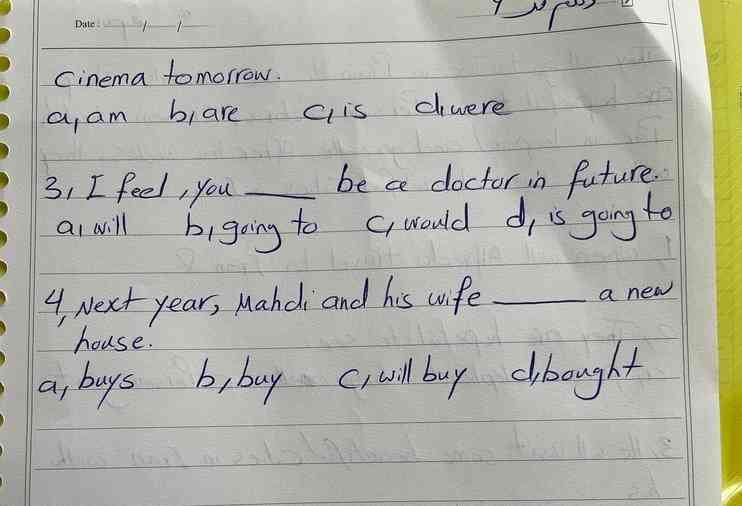 Date: / /
Cinema tomorrow.
a, am b, are c, is d, were
3, I feel, you ____ be a doctor in future.
a, will b, going to c, would d, is going to
4, Next year, Mahdi and his wife ____ a new
house.
a, buys b, buy c, will buy d, bought